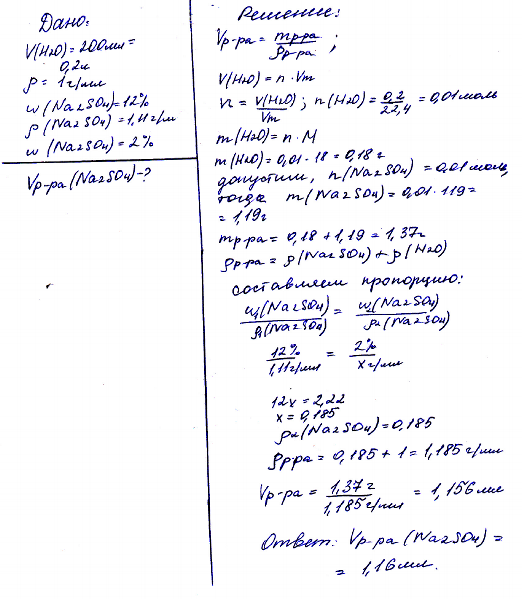 Дано:
V(H2O)=200мл=
0,2л
ρ= 1г/мл
w(Na2SO4)=12%
ρ(Na2SO4)=1,11г/мл
w(Na2SO4)=2%
Vр-ра(Na2SO4)-?
Решение:
Vр-ра= mр-ра/ρр-ра ;
V(H2O)=n·Vm
n= V(H2O)/Vm ; n(H2O)= 0,2/22,4 =0,01моль
m(H2O)=n·M
m(H2O)=0,01·18=0,18г
допустим, n(Na2SO4)=0,01моль,
тогда m(Na2SO4)=0,01·119=
=1,19г
mр-ра=0,18+1,19=1,37г
ρр-ра=ρ(Na2SO4)+ρ(H2O)
составляем пропорцию:
w1(Na2SO4)/ρ1(Na2SO4) = w2(Na2SO4)/ρ2(Na2SO4)
12%/1,11г/мл = 2%/xг/мл
12x=2,22
x=0,185
ρ2(Na2SO4)=0,185
ρр-ра=0,185+1=1,185г/мл
Vр-ра= 1,37г/1,185г/мл =1,156мл
Ответ: Vр-ра(Na2SO4)=
= 1,16мл.